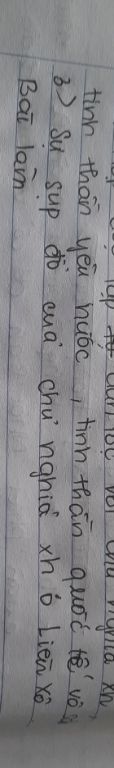 lập dân tộc với chủ nghĩa xh,
tinh thần yêu nước, tinh thần quốc tế vô s
3) Sự sụp đổ của chủ nghĩa xh ở Liên Xô
Bài làm